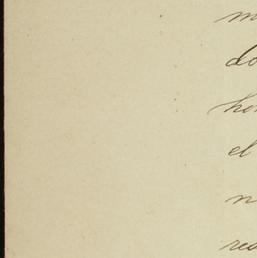 m
do
hon
el
n
res